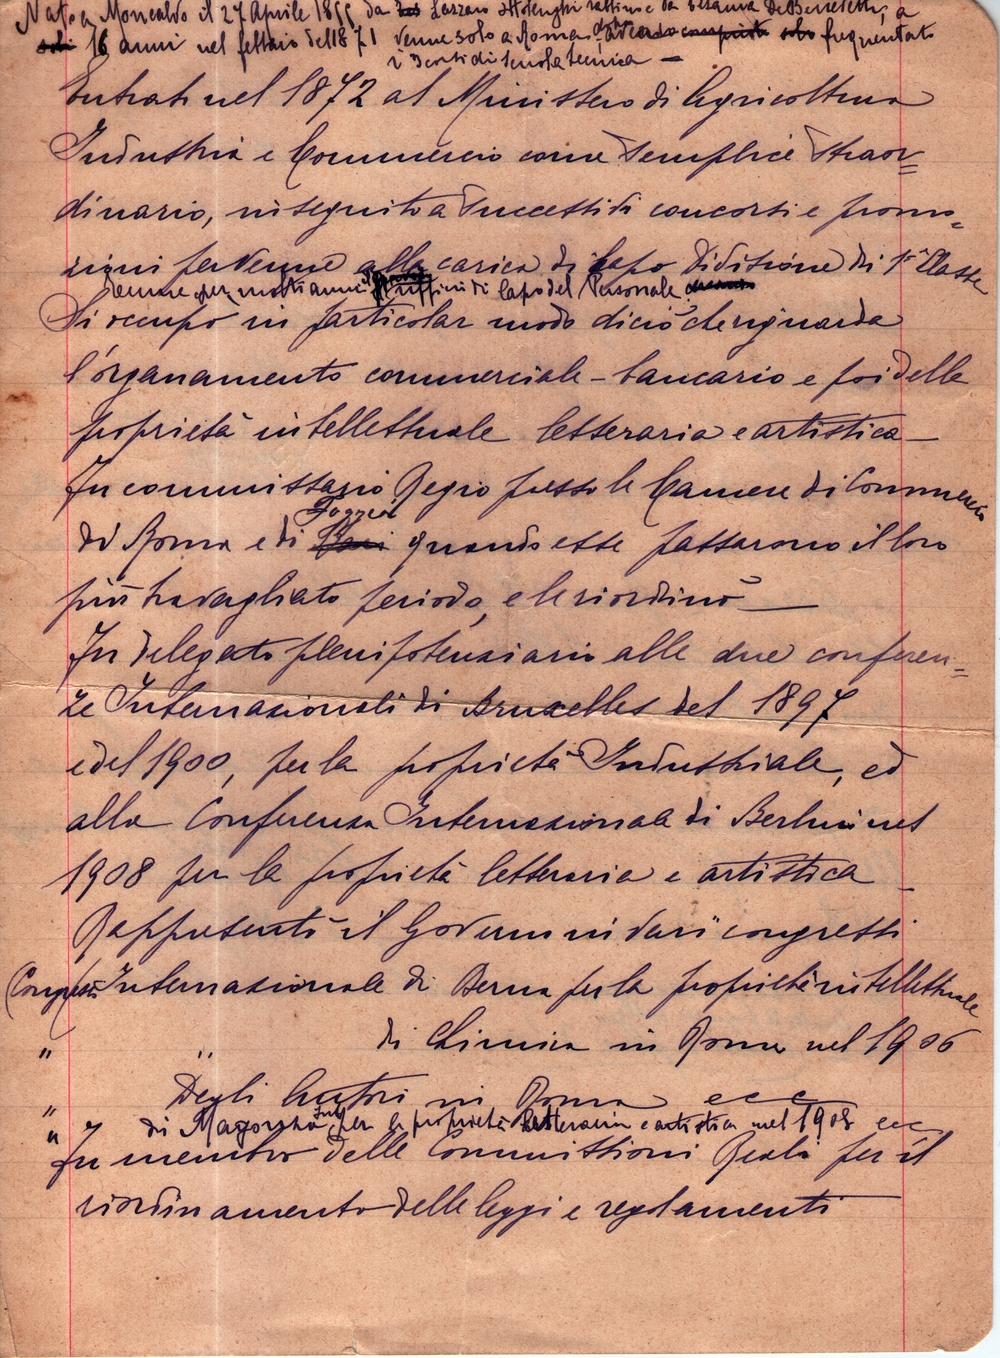 Nato a Moncalvo il 27 Aprile 1855 da Lazzaro Ottolenghi e da De Benedetti, a
soli 16 anni nel febbraio del 1871 venne solo a Roma, dopo frequentato
i 3 corsi di scuola tecnica —
Entrato nel 1872 al Ministero di Agricoltura
Industria e Commercio come semplice straor=
dinario, in seguito a successivi concorsi e promo=
zioni pervenne alla carica di Capo Divisione di 1ª Classe
tenne per molti anni uffici di Capo del Personale
Si occupò in particolar modo di ciò che riguarda
l'organamento commerciale - bancario e poi della
proprietà intellettuale letteraria e artistica —
Fu commissario Regio presso le Camere di Commercio
di Roma e di Foggia quando esse passarono il loro
più travagliato periodo, e le riordinò —
Fu delegato plenipotenziario alle due conferen=
ze Internazionali di Bruxelles del 1897
e del 1900, per la proprietà Industriale, ed
alla Conferenza Internazionale di Berlino nel
1908 per la proprietà letteraria e artistica —
Rappresentò il Governo in vari congressi
(Congresso Internazionale di Berna per la proprietà intellettuale
" " di Chimica in Roma nel 1906
" Degli Autori in Roma ecc
" di per la proprietà letteraria e artistica nel 1908 ecc
Fu membro delle Commissioni Reali per il
riordinamento delle leggi e regolamenti